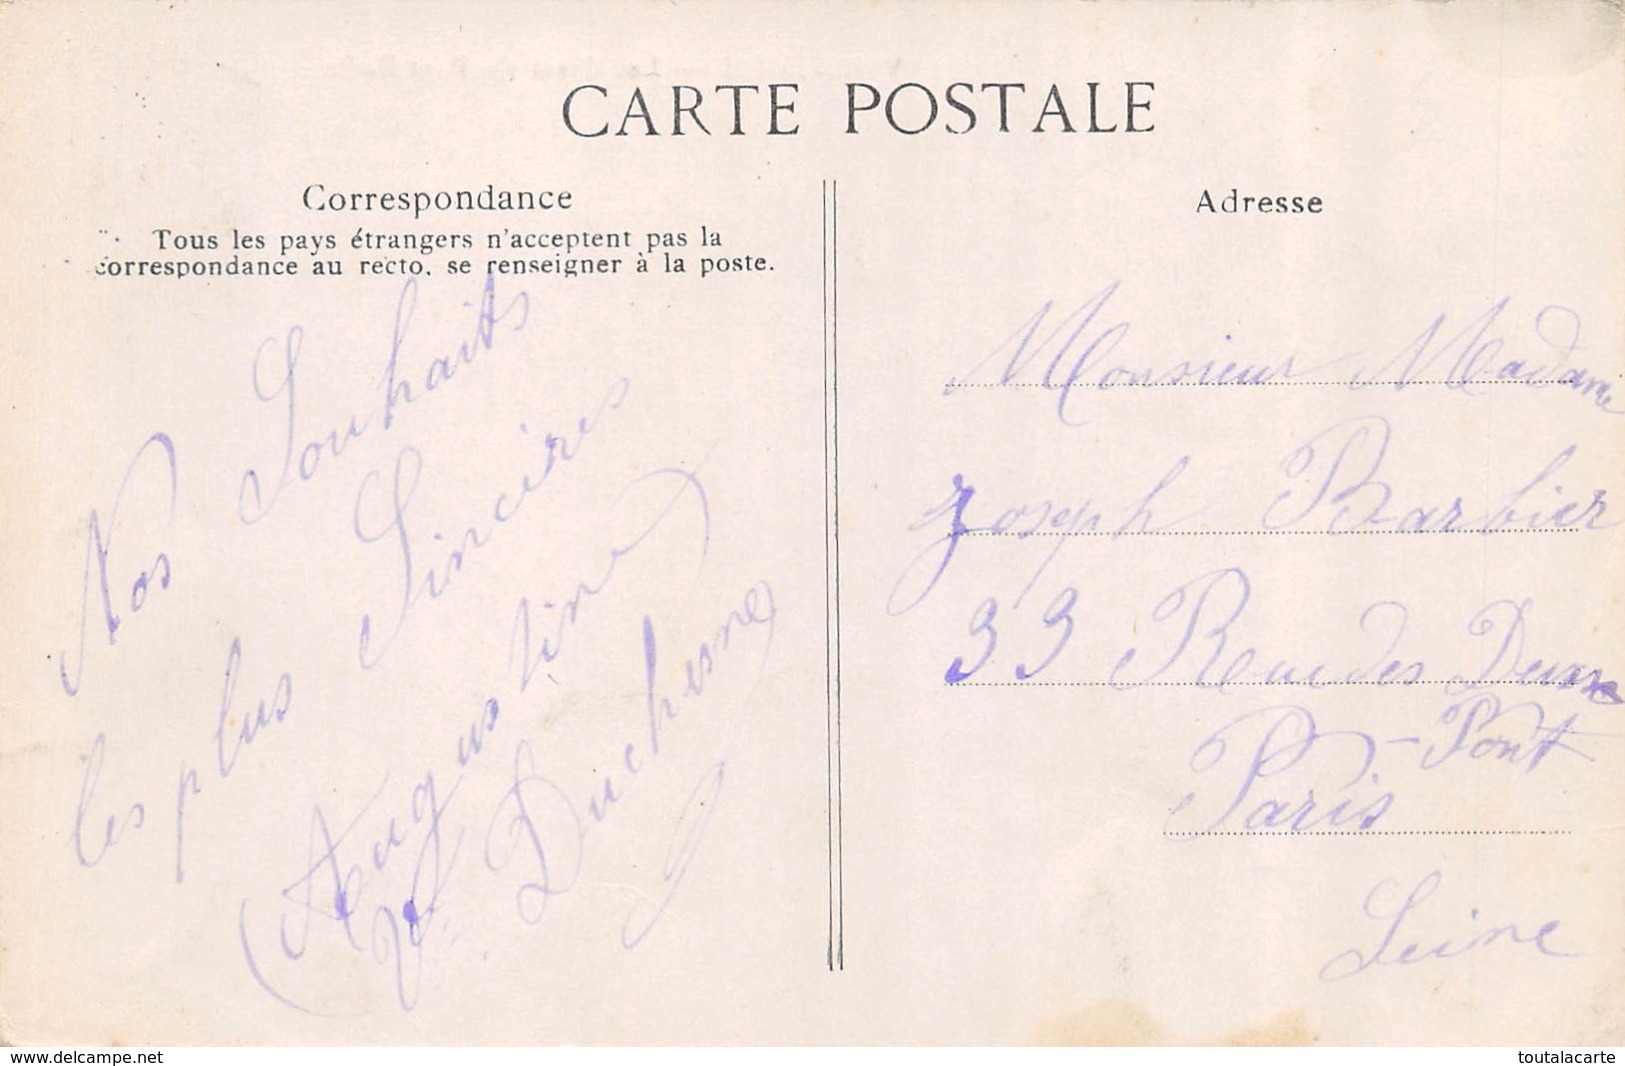 CARTE POSTALE
Correspondance
Tous les pays étrangers n'acceptent pas la
correspondance au recto, se renseigner à la poste.
Nos Souhaits
les plus Sincères
Augustine
Duchesne
Adresse
Monsieur Madame
Joseph Barbier
33 Rue des Deux
-Pont
Paris
Seine
www.delcampe.net
toutalacarte